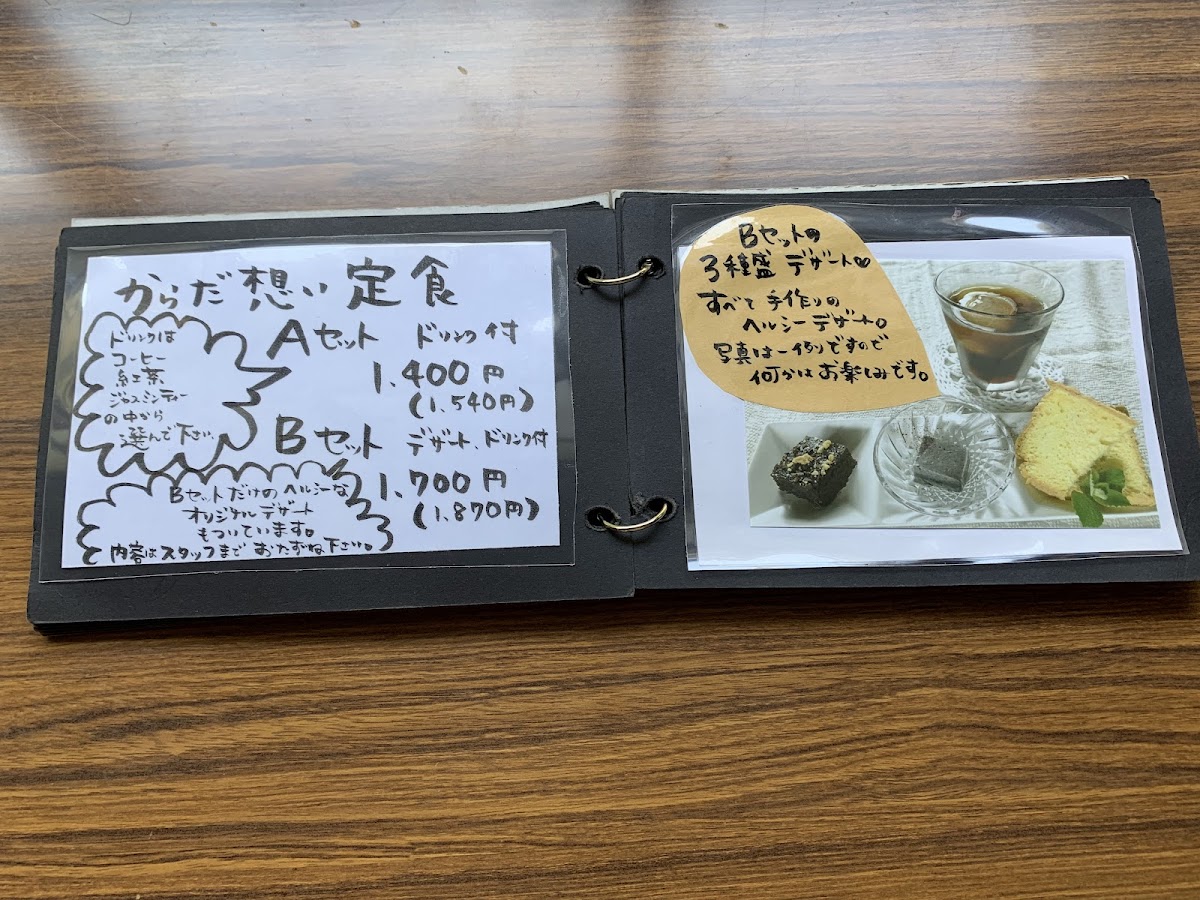 からだ想い定食
Aセット ドリンク付
1,400円
(1,540円)
ドリンクは
コーヒー
紅茶
ジャスミンティー
の中から
選んで下さい
Bセット デザート、ドリンク付
1,700円
(1,870円)
Bセットだけのヘルシーな
オリジナルデザート
もついています。
内容はスタッフまでおたずね下さい。
Bセットの
3種盛デザート♥
すべて手作りの
ヘルシーデザート。
写真は一例ですので
何かはお楽しみです。